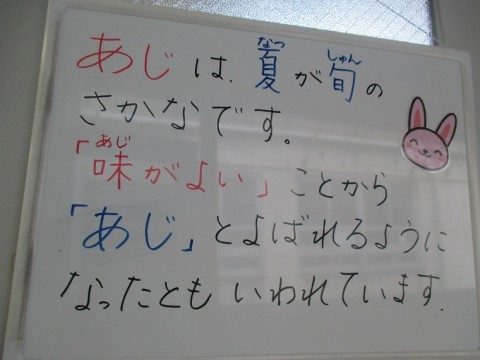 あじは、夏が旬の
さかなです。
「味がよい」ことから
「あじ」とよばれるように
なったともいわれています.